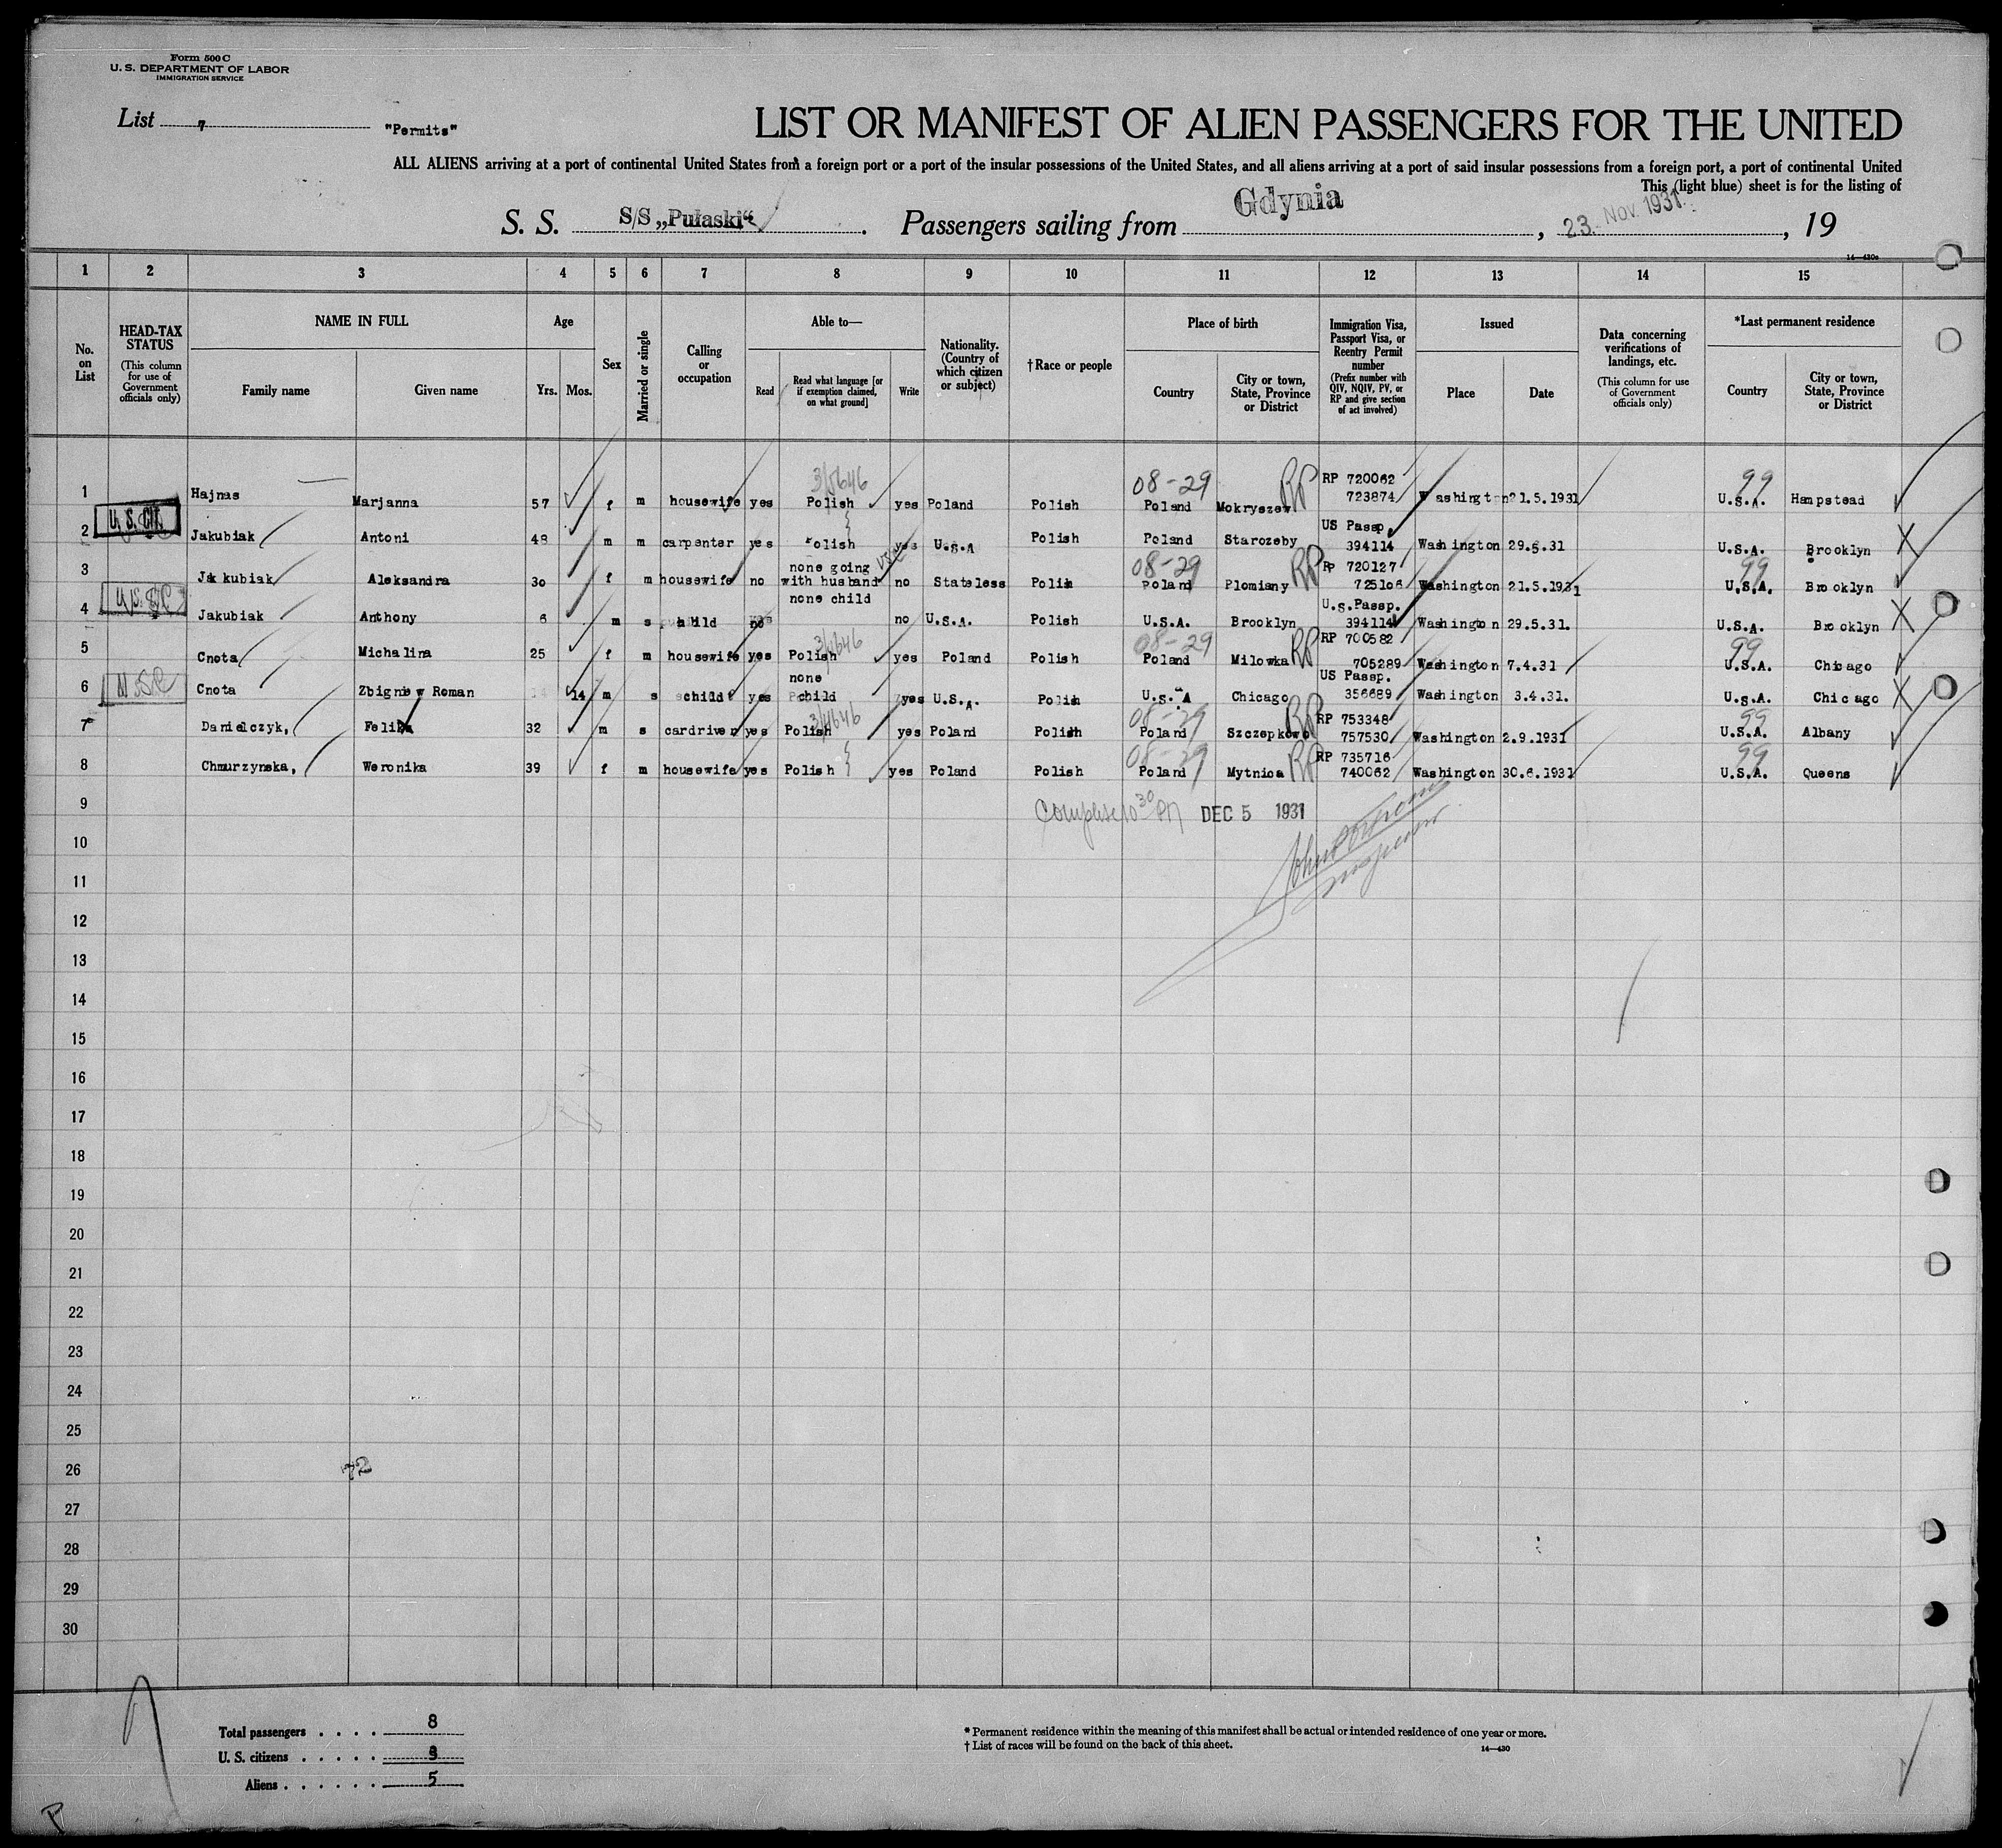 Form 500 C
U. S. DEPARTMENT OF LABOR
IMMIGRATION SERVICE
List 7 "Permits"
LIST OR MANIFEST OF ALIEN PASSENGERS FOR THE UNITED
ALL ALIENS arriving at a port of continental United States from a foreign port or a port of the insular possessions of the United States, and all aliens arriving at a port of said insular possessions from a foreign port, a port of continental United
This (light blue) sheet is for the listing of
S. S. S/S „Pułaski“. Passengers sailing from Gdynia, 23. Nov 1931., 19
14—430c
1 2 3 4 5 6 7 8 9 10 11 12 13 14 15
No. on List
HEAD-TAX STATUS
(This column for use of Government officials only)
NAME IN FULL
Family name Given name
Age
Yrs. Mos.
Sex
Married or single
Calling or occupation
Able to—
Read
Read what language [or if exemption claimed, on what ground]
Write
Nationality. (Country of which citizen or subject)
†Race or people
Place of birth
Country
City or town, State, Province or District
Immigration Visa, Passport Visa, or Reentry Permit number
(Prefix number with QIV, NQIV, PV, or RP and give section of act involved)
Issued
Place Date
Data concerning verifications of landings, etc.
(This column for use of Government officials only)
*Last permanent residence
Country
City or town, State, Province or District
3/5646 08-29 RP RP 720062 99
1 Hajnas Marjanna 57 f m housewife yes Polish yes Poland Polish Poland Mokryszew 723874 Washington 21.5.1931 U.S.A. Hampstead
U. S. CIT. US Passp.
2 Jakubiak Antoni 48 m m carpenter yes Polish yes U.S.A Polish Poland Starozeby 394114 Washington 29.5.31 U.S.A. Brooklyn
none going 08-29 RP RP 720127 99
3 Jakubiak Aleksandra 30 f m housewife no with husband no Stateless Polish Poland Plomiany 725106 Washington 21.5.1931 U.S.A. Brooklyn
none child U.S.Passp.
4 Jakubiak Anthony 6 m s child no no U.S.A. Polish U.S.A. Brooklyn 394114 Washington 29.5.31. U.S.A. Brooklyn
08-29 RP RP 700582 99
5 Cnota Michalina 25 f m housewife yes Polish yes Poland Polish Poland Milowka 705289 Washington 7.4.31 U.S.A. Chicago
none US Passp.
6 Cnota Zbigniew Roman 14 m s child yes child yes U.S.A. Polish U.S.A Chicago 356689 Washington 3.4.31. U.S.A. Chicago
08-29 RP RP 753348 99
7 Danielczyk, Felix 32 m s cardriver yes Polish yes Poland Polish Poland Szczepkowo 757530 Washington 2.9.1931 U.S.A. Albany
08-29 RP RP 735716 99
8 Chmurzynska, Weronika 39 f m housewife yes Polish yes Poland Polish Poland Mytnica 740062 Washington 30.6.1931 U.S.A. Queens
9 Complete 10 30 PM DEC 5 1931
10
11
12
13
14
15
16
17
18
19
20
21
22
23
24
25
26
27
28
29
30
Total passengers . . . . 8
U. S. citizens . . . . . 3
Aliens . . . . . . 5
* Permanent residence within the meaning of this manifest shall be actual or intended residence of one year or more.
† List of races will be found on the back of this sheet.
14—430
P